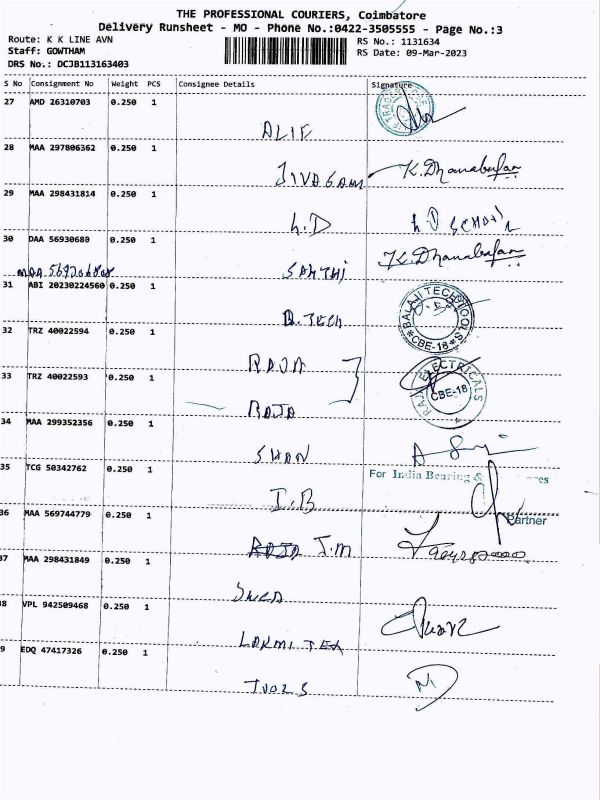 THE PROFESSIONAL COURIERS, Coimbatore
Delivery Runsheet - MO - Phone No.:0422-3505555 - Page No.:3
Route: K K LINE AVN
RS No.: 1131634
Staff: GOWTHAM
RS Date: 09-Mar-2023
DRS No.: DCJB113163403
S No Consignment No Weight PCS Consignee Details Signature
27 AMD 26310703 0.250 1
ALIF
28 MAA 297806362 0.250 1
JIVAGAM K.Dhanabalan
29 MAA 298431814 0.250 1
L.D L D SCHOOL
30 DAA 5693068 0.250 1
SANTHI K.Dhanabalan
31 ABI 20230224560 0.250 1
B.TECH BALAJI TECH TOOLS *CBE-18*
32 TRZ 40022594 0.250 1
RAJA
33 TRZ 40022593 0.250 1
RAJA RAJA ELECTRICALS CBE-18
34 MAA 299352356 0.250 1
SHAN
35 TCG 50342762 0.250 1
For India Bearing &
I.B
Partner
36 MAA 569744779 0.250 1
J.M
37 MAA 298431849 0.250 1
38 VPL 942509468 0.250 1
LAKMI TEX
9 EDQ 47417326 0.250 1
TOOLS